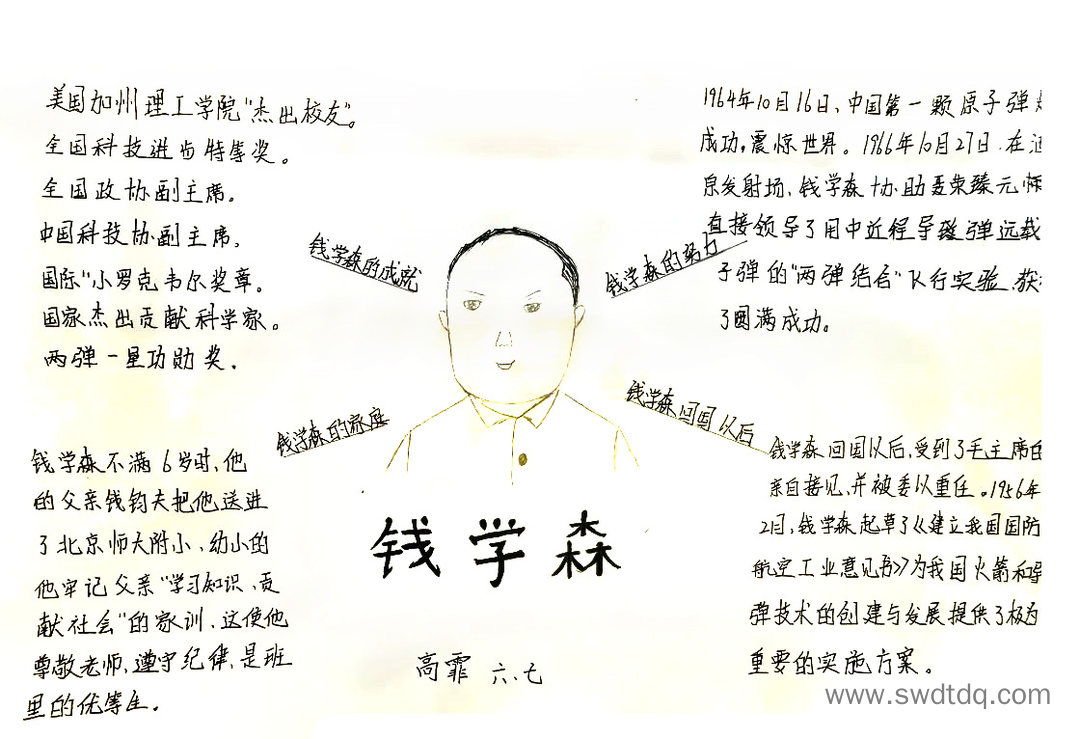 美国加州理工学院"杰出校友"。
全国科技进步特等奖。
全国政协副主席。
中国科技协副主席.
国际"小罗克韦尔奖章。
国家杰出贡献科学家。
两弹一星功勋奖.
钱学森的成就
钱学森的努力
1964年10月16日、中国第一颗原子弹
成功,震惊世界。1966年10月27日.在
泉发射场、钱学森协助聂荣臻元帅
直接领导了用中近程导弹运载
子弹的"两弹结合"飞行实验.获
了圆满成功。
钱学森的家庭
钱学森不满6岁时、他
的父亲钱钧夫把他送进
了北京师大附小、幼小的
他牢记父亲"学习知识、贡
献社会"的家训、这使他
尊敬老师,遵守纪律,是班
里的优等生。
钱学森回国以后
钱学森回国以后,受到了毛主席的
亲自接见、并被委以重任。1956年
2月,钱学森起草了《建立我国国防
航空工业意见书》为我国火箭和导
弹技术的创建与发展提供了极为
重要的实施方案。
钱学森
高霏 六、七
www.swdtdq.com